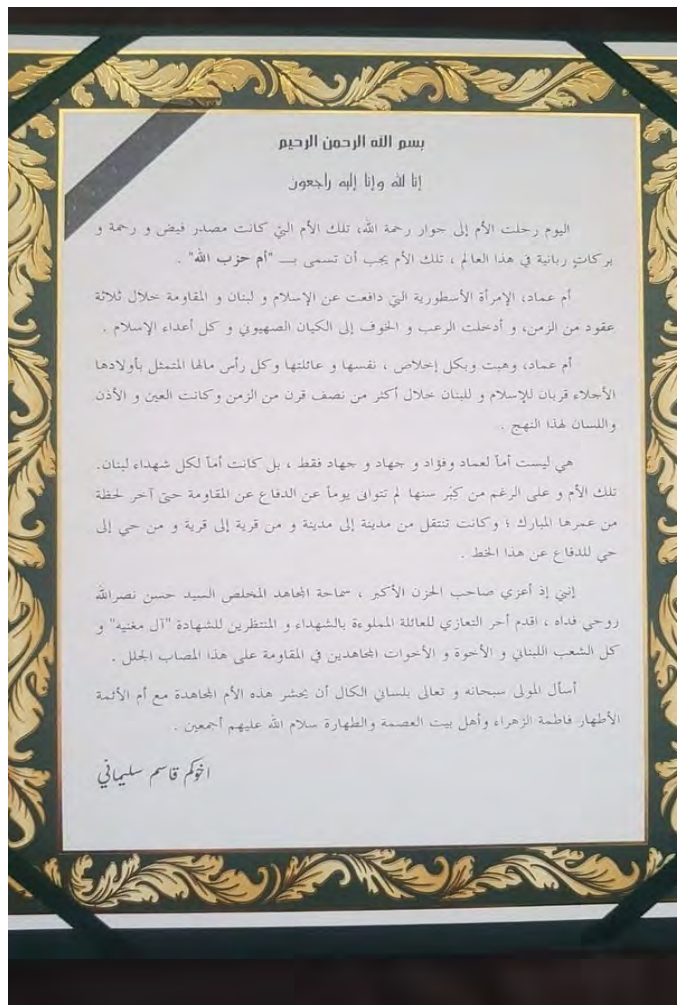 بسم الله الرحمن الرحيم
إنا لله وإنا إليه راجعون
اليوم رحلت الأم إلى جوار رحمة الله، تلك الأم التي كانت مصدر فيض و رحمة و
بركاتٍ ربانية في هذا العالم ، تلك الأم يجب أن تسمى بــ "أم حزب الله" .
أم عماد، الإمرأة الأسطورية التي دافعت عن الإسلام و لبنان و المقاومة خلال ثلاثة
عقود من الزمن، و أدخلت الرعب و الخوف إلى الكيان الصهيوني و كل أعداء الإسلام .
أم عماد، وهبت وبكل إخلاص ، نفسها و عائلتها وكل رأس مالها المتمثل بأولادها
الأجلاء قربان للإسلام و للبنان خلال أكثر من نصف قرن من الزمن وكانت العين و الأذن
واللسان لهذا النهج .
هي ليست أماً لعماد وفؤاد و جهاد و جهاد فقط ، بل كانت أماً لكل شهداء لبنان.
تلك الأم و على الرغم من كبَر سنها لم تتوانى يوماً عن الدفاع عن المقاومة حتى آخر لحظة
من عمرها المبارك ؛ وكانت تنتقل من مدينة إلى مدينة و من قرية إلى قرية و من حي إلى
حي للدفاع عن هذا الخط .
إنني إذ أعزي صاحب الحزن الأكبر ، سماحة المجاهد المخلص السيد حسن نصرالله
روحي فداه ، اقدم أحر التعازي للعائلة المملوءة بالشهداء و المنتظرين للشهادة "آل مغنيه" و
كل الشعب اللبناني و الأخوة و الأخوات المجاهدين في المقاومة على هذا المصاب الجلل .
أسأل المولى سبحانه و تعالى بلساني الكال أن يحشر هذه الأم المجاهدة مع أم الأئمة
الأطهار فاطمة الزهراء وأهل بيت العصمة والطهارة سلام الله عليهم أجمعين .
اخوكم قاسم سليماني